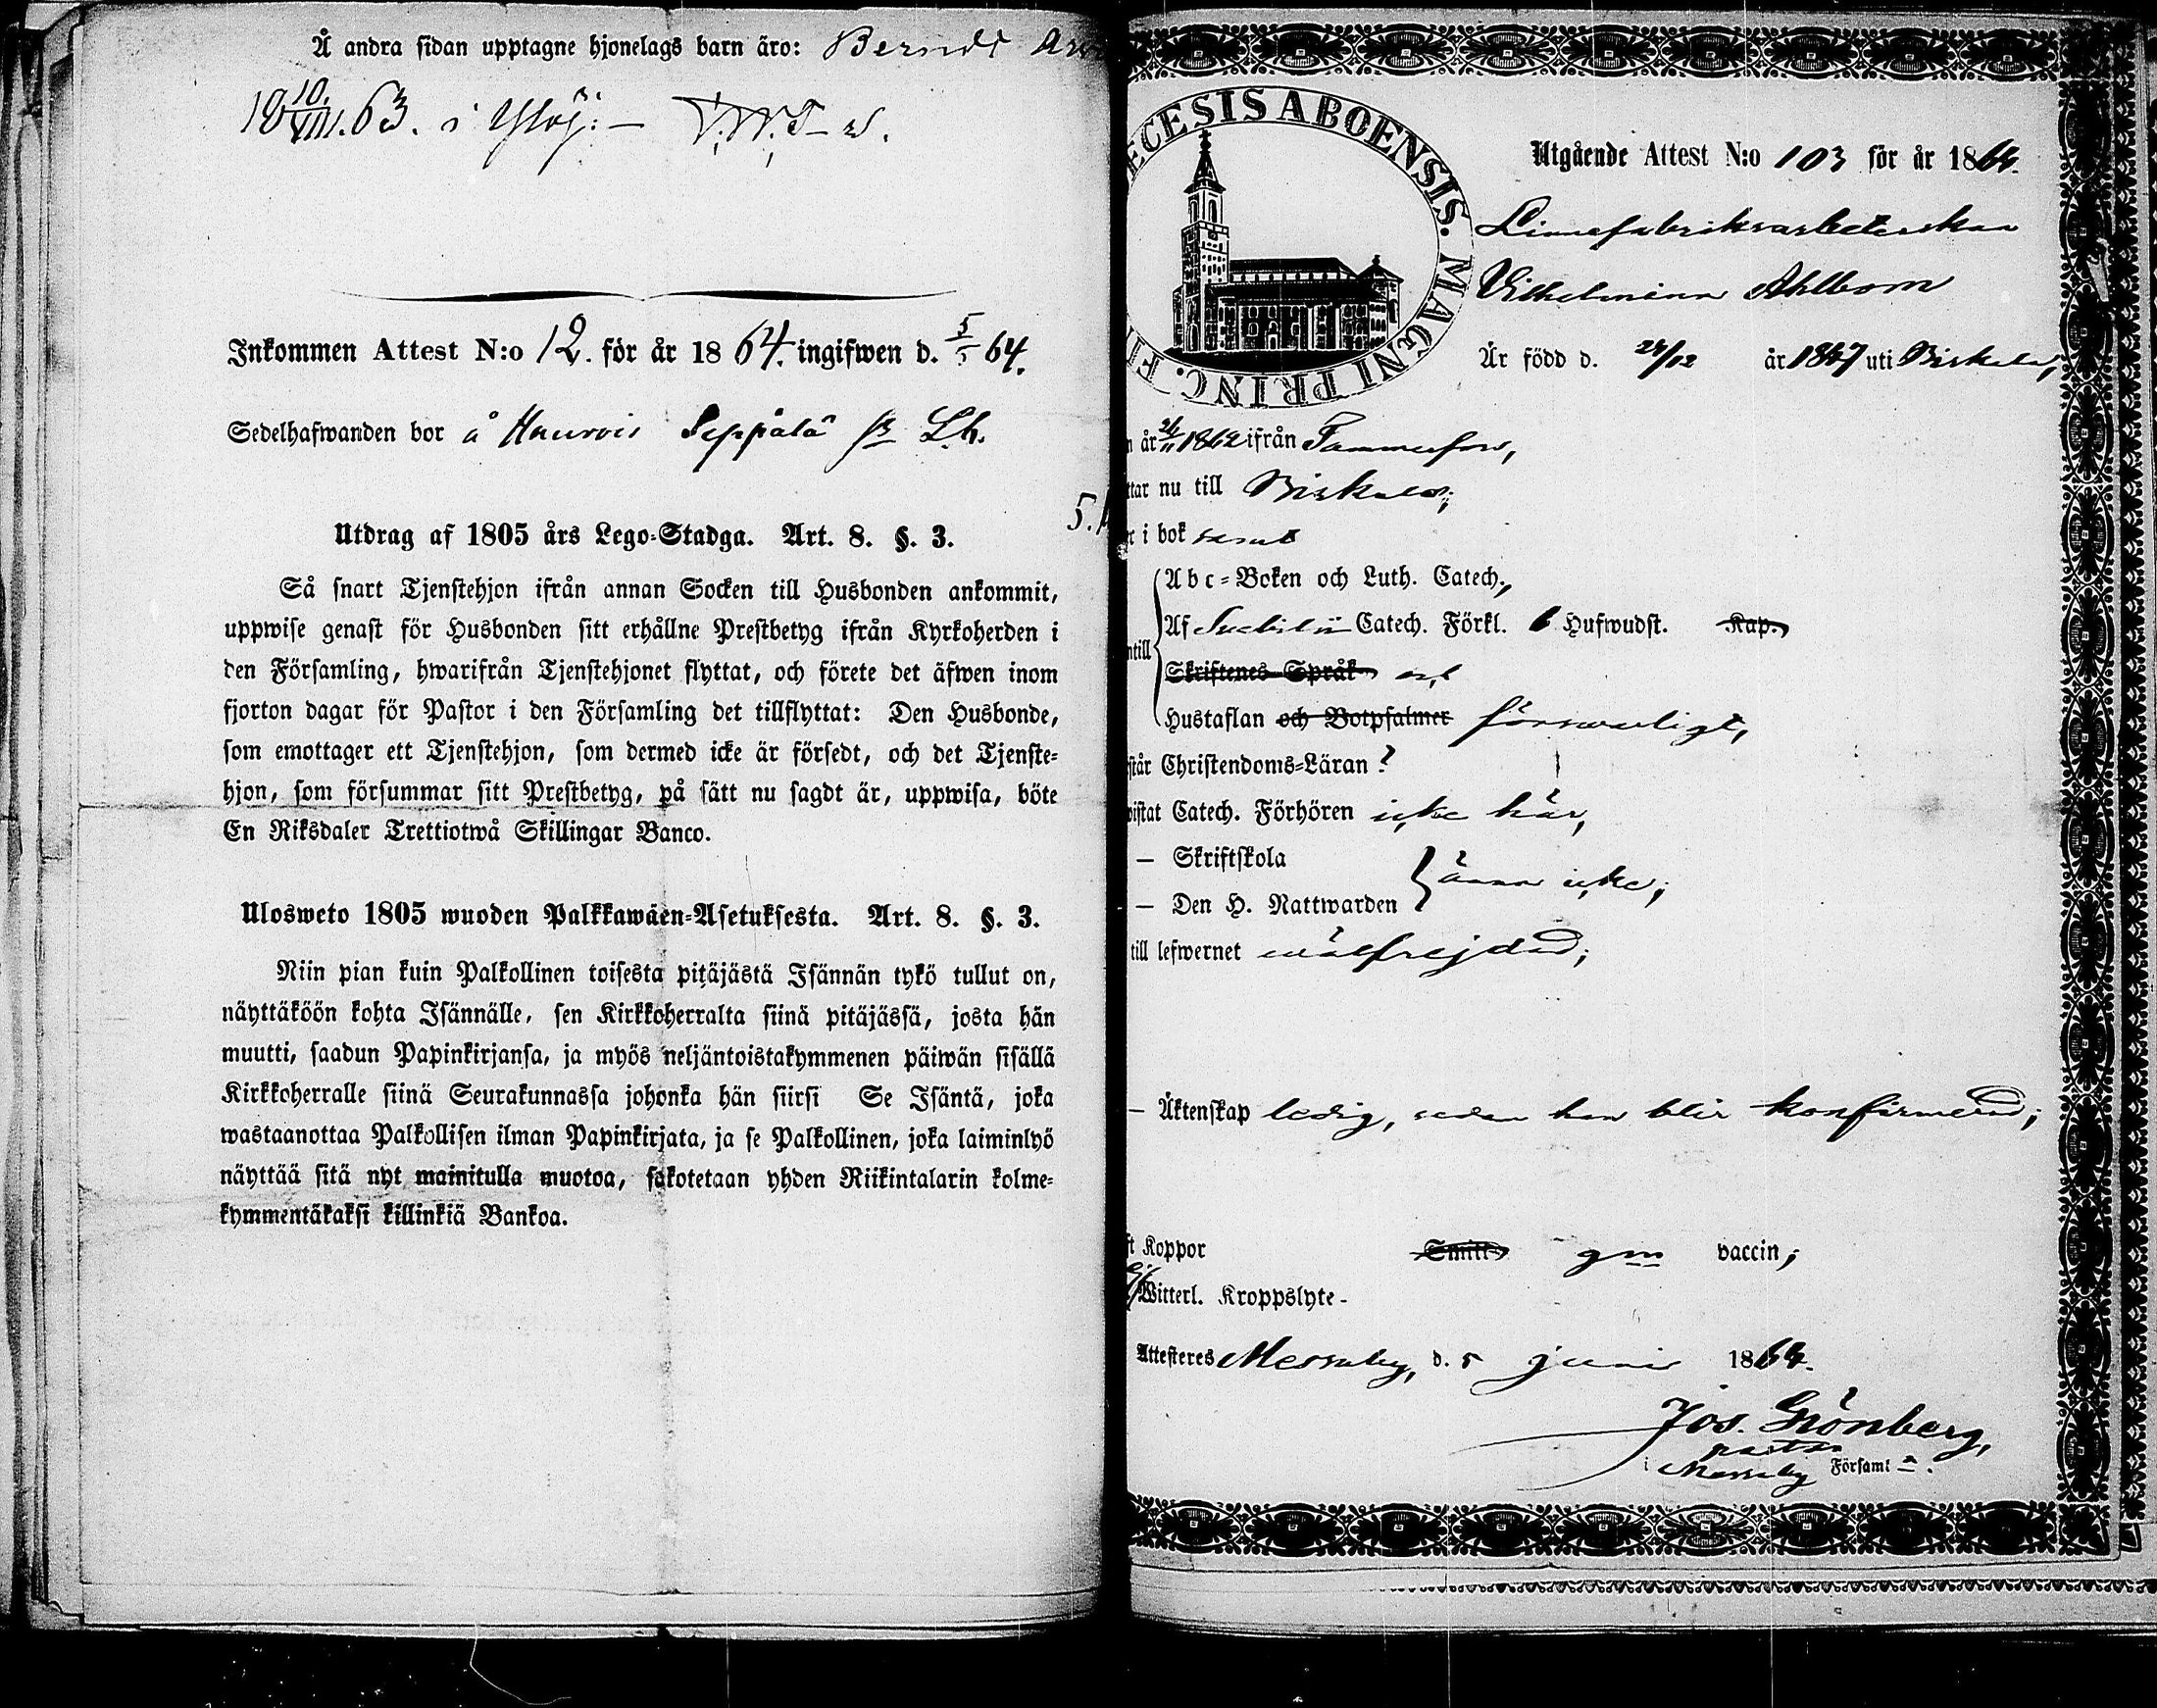 Å andra sidan upptagne hjonelags barn äro: Berndt
18 10/VIII. 63. i
Inkommen Attest N:o 12. för år 1864. ingifwen d. 5/5 64.
Sedelhafwanden bor å Seppälä
Utdrag af 1805 års Lego-Stadga. Art. 8. §. 3.
Så snart Tjenstehjon ifrån annan Socken till Husbonden ankommit,
uppwise genast för Husbonden sitt erhållne Prestbetyg ifrån Kyrkoherden i
den Församling, hwarifrån Tjenstehjonet flyttat, och förete det äfwen inom
fjorton dagar för Pastor i den Församling det tillflyttat: Den Husbonde,
som emottager ett Tjenstehjon, som dermed icke är försedt, och det Tjenste-
hjon, som försummar sitt Prestbetyg, på sätt nu sagdt är, uppwisa, böte
En Riksdaler Trettiotwå Skillingar Banco.
Ulosweto 1805 wuoden Palkkawäen-Asetuksesta. Art. 8. §. 3.
Niin pian kuin Palkollinen toisesta pitäjästä Isännän tykö tullut on,
näyttäköön kohta Isännälle, sen Kirkkoherralta siinä pitäjässä, josta hän
muutti, saadun Papinkirjansa, ja myös neljäntoistakymmenen päiwän sisällä
Kirkkoherralle siinä Seurakunnassa johonka hän siirsi Se Isäntä, joka
wastaanottaa Palkollisen ilman Papinkirjata, ja se Palkollinen, joka laiminlyö
näyttää sitä nyt mainitulla muotoa, sakotetaan yhden Riikintalarin kolme-
kymmentäkaksi killinkiä Bankoa.
ECESIS ABOENSIS. MAGNI PRINC. FI
Utgående Attest N:o 103 för år 1864.
Linnefabriksarbeterskan
Vilhelmina Ahlbom
Är född d. 24/12 år 1847 uti Birkala,
år 1862 ifrån Tammerfors,
ttar nu till Birkala;
i bok
Abc-Boken och Luth. Catech.,
Af Svebilii Catech. Förkl. 6 Hufwudst. Kap.
ntill
Skriftenes Språk
Hustaflan och Botpsalmer försvarligt,
står Christendoms-Läran?
wistat Catech. Förhören icke här,
— Skriftskola
ännu icke;
— Den H. Nattwarden
till lefwernet wälfrejdad;
— Äktenskap ledig, sedan hon blir konfirmerad;
ft Koppor Smitt. gm vaccin;
Witterl. Kroppslyte-
Attesteres Messuby, d. 5 juni 1864.
Jos. Grönberg,
pastor
i Messuby Församl